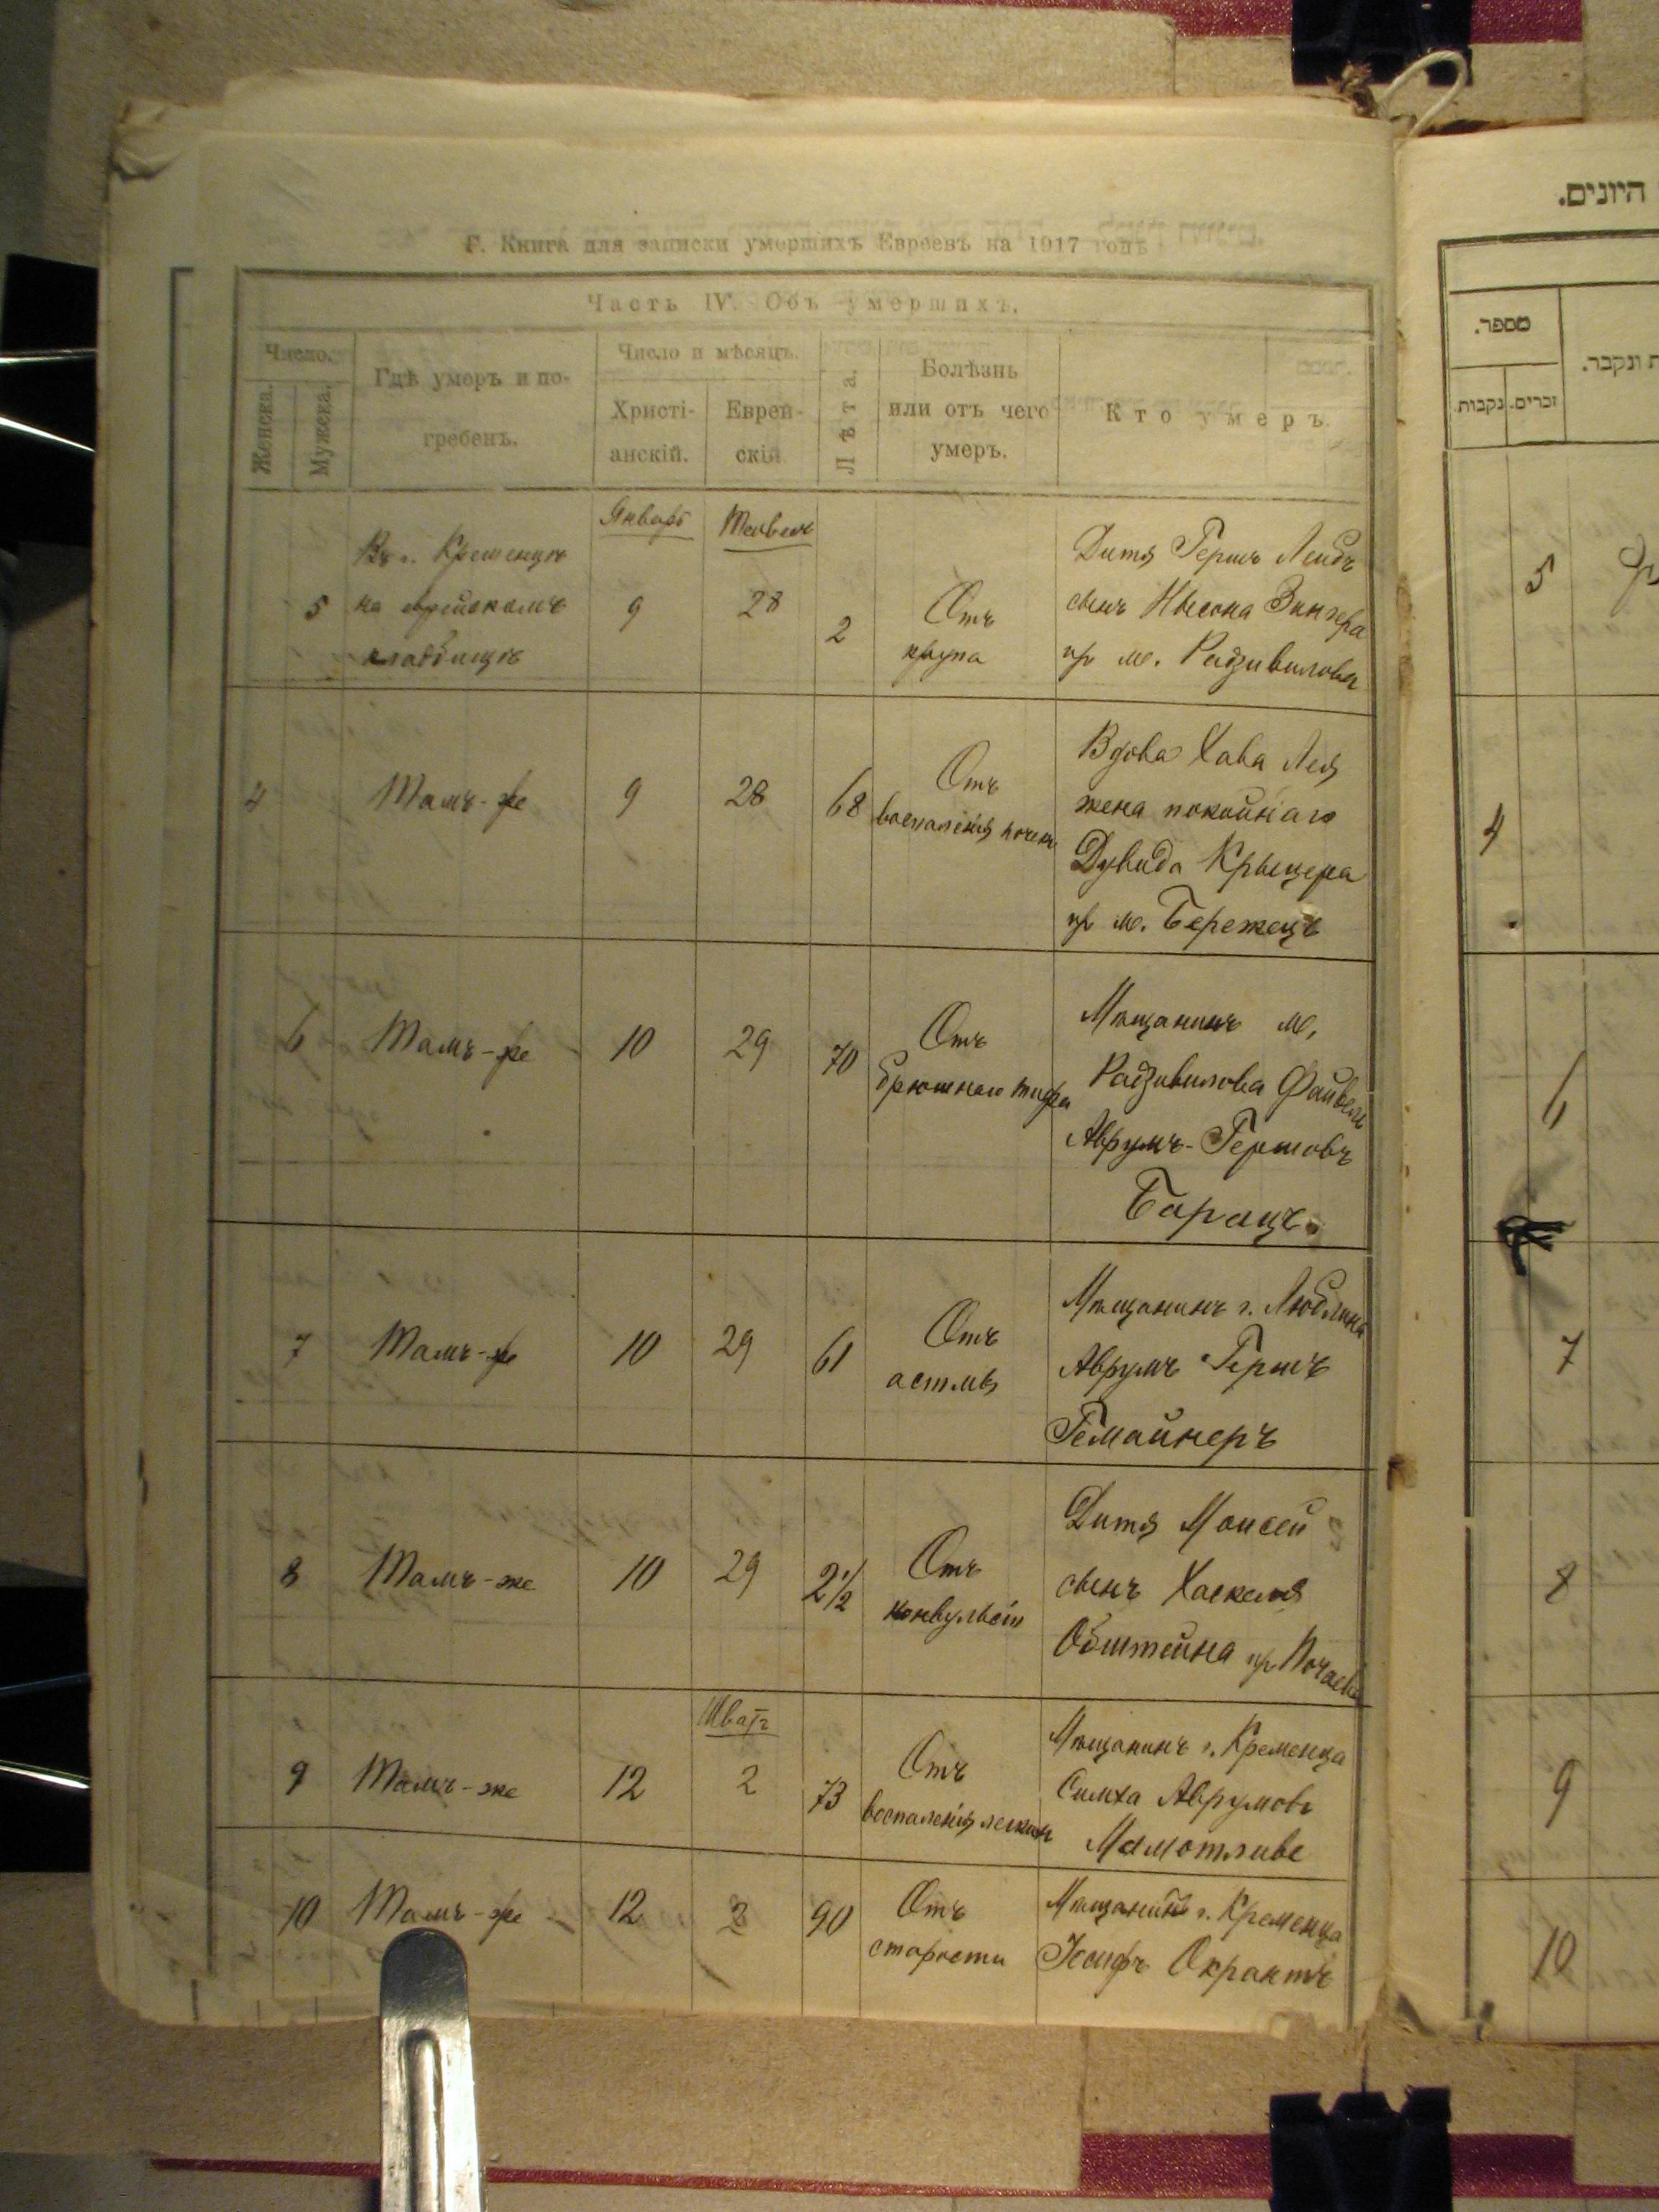 Г. Книга для записки умершихъ Евреевъ на 1917 годъ
Часть IV. Объ умершихъ.
Число.
Женска.
Мужеска.
Гдѣ умеръ и по-
гребенъ.
Число и мѣсяцъ.
Христі-
анскій.
Еврей-
скій
Лѣта.
Болѣзнь
или отъ чего
умеръ.
Кто умеръ.
Январь
Тевесъ
5
Въ г. Кременцѣ
на еврейскомъ
кладбищѣ
9
28
2
Отъ
крупа
Дитя Гершъ Лейбъ
сынъ Нысона Зингера
пр м. Радзивилова
4
Тамъ-же
9
28
68
Отъ
воспаленія почекъ
Вдова Хава Лея
жена покойнаго
Дувида Крыцера
пр м. Бережецъ
6
Тамъ-же
10
29
70
Отъ
брюшнаго тифа
Мѣщанинъ м.
Радзивилова Файвель
Аврумъ-Гершовъ
Барацъ.
7
Тамъ-же
10
29
61
Отъ
астмы
Мѣщанинъ г. Люблина
Аврумъ Гершъ
Гемайнеръ
8
Тамъ-же
10
29
2 1/2
Отъ
конвульсіи
Дитя Моисей
сынъ Хаскеля
Обштейна пр Почаева
Шватъ
9
Тамъ-же
12
2
73
Отъ
воспаленія легкихъ
Мѣщанинъ г. Кременца
Симха Аврумовъ
Мамотливе
10
Тамъ-же
12
2
90
Отъ
старости
Мѣщанинъ г. Кременца
Іосифъ Окрантъ
היונים.
מספר.
נקבות.
זכרים.
ונקבר.
5
4
6
7
8
9
10